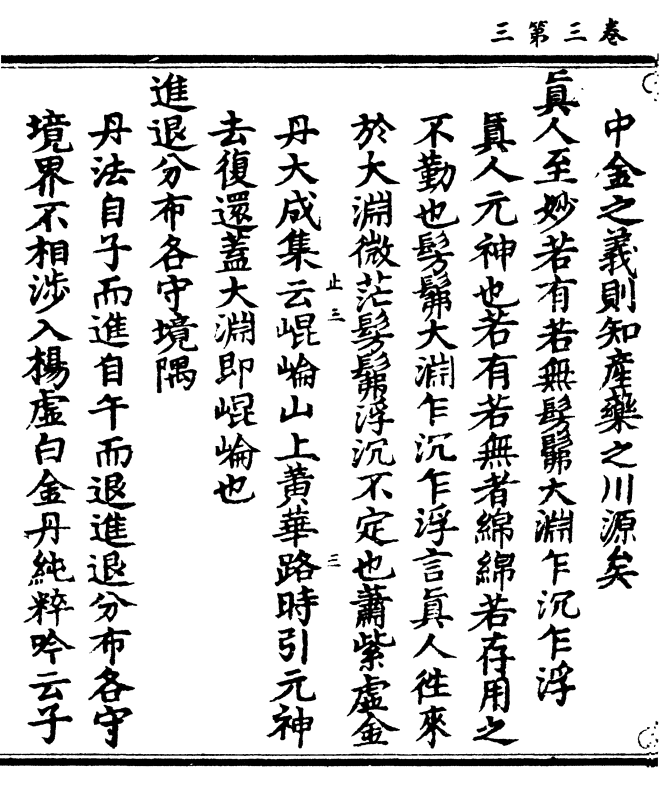 卷三第三
中金之義則知產藥之川源矣
眞人至妙若有若無髣髴大淵乍沉乍浮
眞人元神也若有若無者綿綿若存用之
不勤也髣髴大淵乍沉乍浮言眞人往來
於大淵微茫髣髴浮沉不定也蕭紫虛金
止三
三
丹大成集云崐崘山上黃華路時引元神
去復還蓋大淵即崐崘也
進退分布各守境隅
丹法自子而進自午而退進退分布各守
境界不相涉入楊虛白金丹純粹吟云子